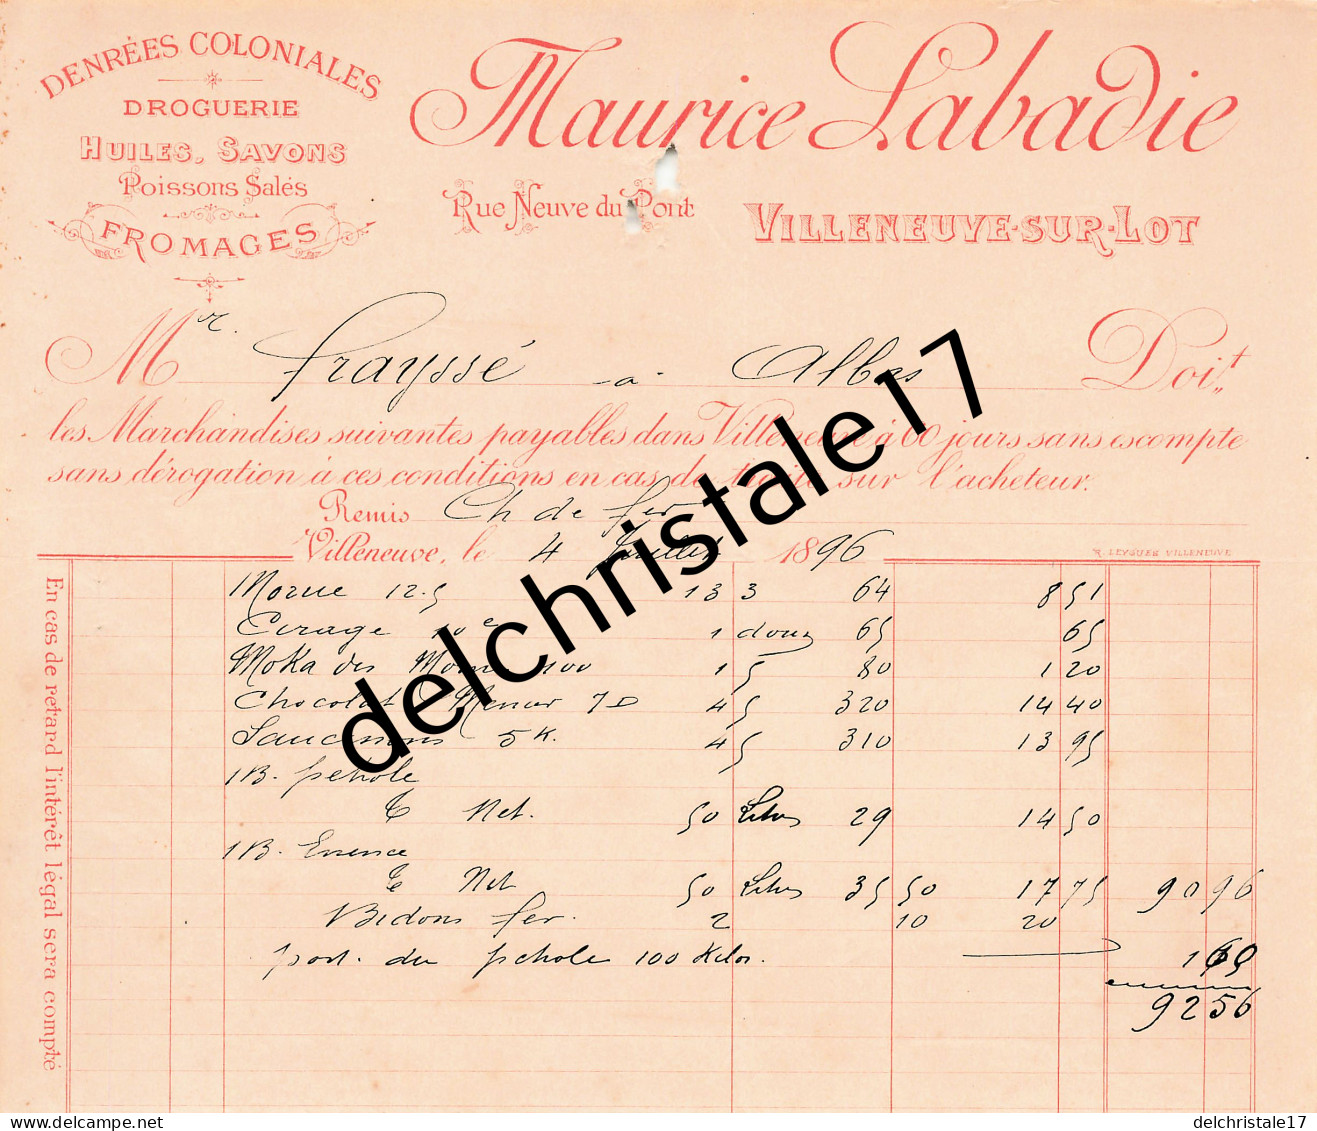 DENRÉES COLONIALES
DROGUERIE
HUILES, SAVONS
Poissons Salés
FROMAGES
Maurice Labadie
Rue Neuve du Pont
VILLENEUVE-SUR-LOT
Mr. Frayssé a Albas Doit
les Marchandises suivantes payables dans Villeneuve à 60 jours sans escompte
sans dérogation à ces conditions en cas de traite sur l'acheteur.
Remis Ch de fer
Villeneuve, le 4 Juillet 1896
R. LEYGUES VILLENEUVE
En cas de retard l'intérêt légal sera compté
Morue 12.5 13 3 64 8 51
Cirage 10c 1 douz 65 65
Moka des 100 1 5 80 1 20
Chocolat Menier 4 5 320 14 40
Saucissons 5 K. 4 5 310 13 95
1 B. petrole
Net. 50 Litres 29 14 50
1 B. Essence
Net 50 Litres 35 50 17 75 90 96
Bidons fer. 2 10 20
port. du petrole 100 Kilos. 1 60
92 56
delchristale17
delchristale17